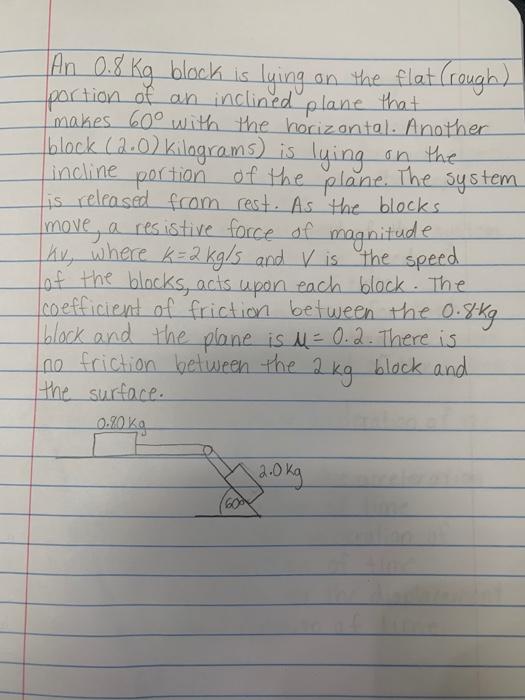 An 0.8 Kg block is lying on the flat (rough)
portion of an inclined plane that
makes 60° with the horizontal. Another
block (2.0) kilograms) is lying on the
incline portion of the plane. The system
is released from rest. As the blocks
move, a resistive force of magnitude
kv, where k=2 kg/s and v is the speed
of the blocks, acts upon each block. The
coefficient of friction between the 0.8kg
block and the plane is μ= 0.2. There is
no friction between the 2 kg block and
the surface.
0.80 Kg
2.0 kg
60°